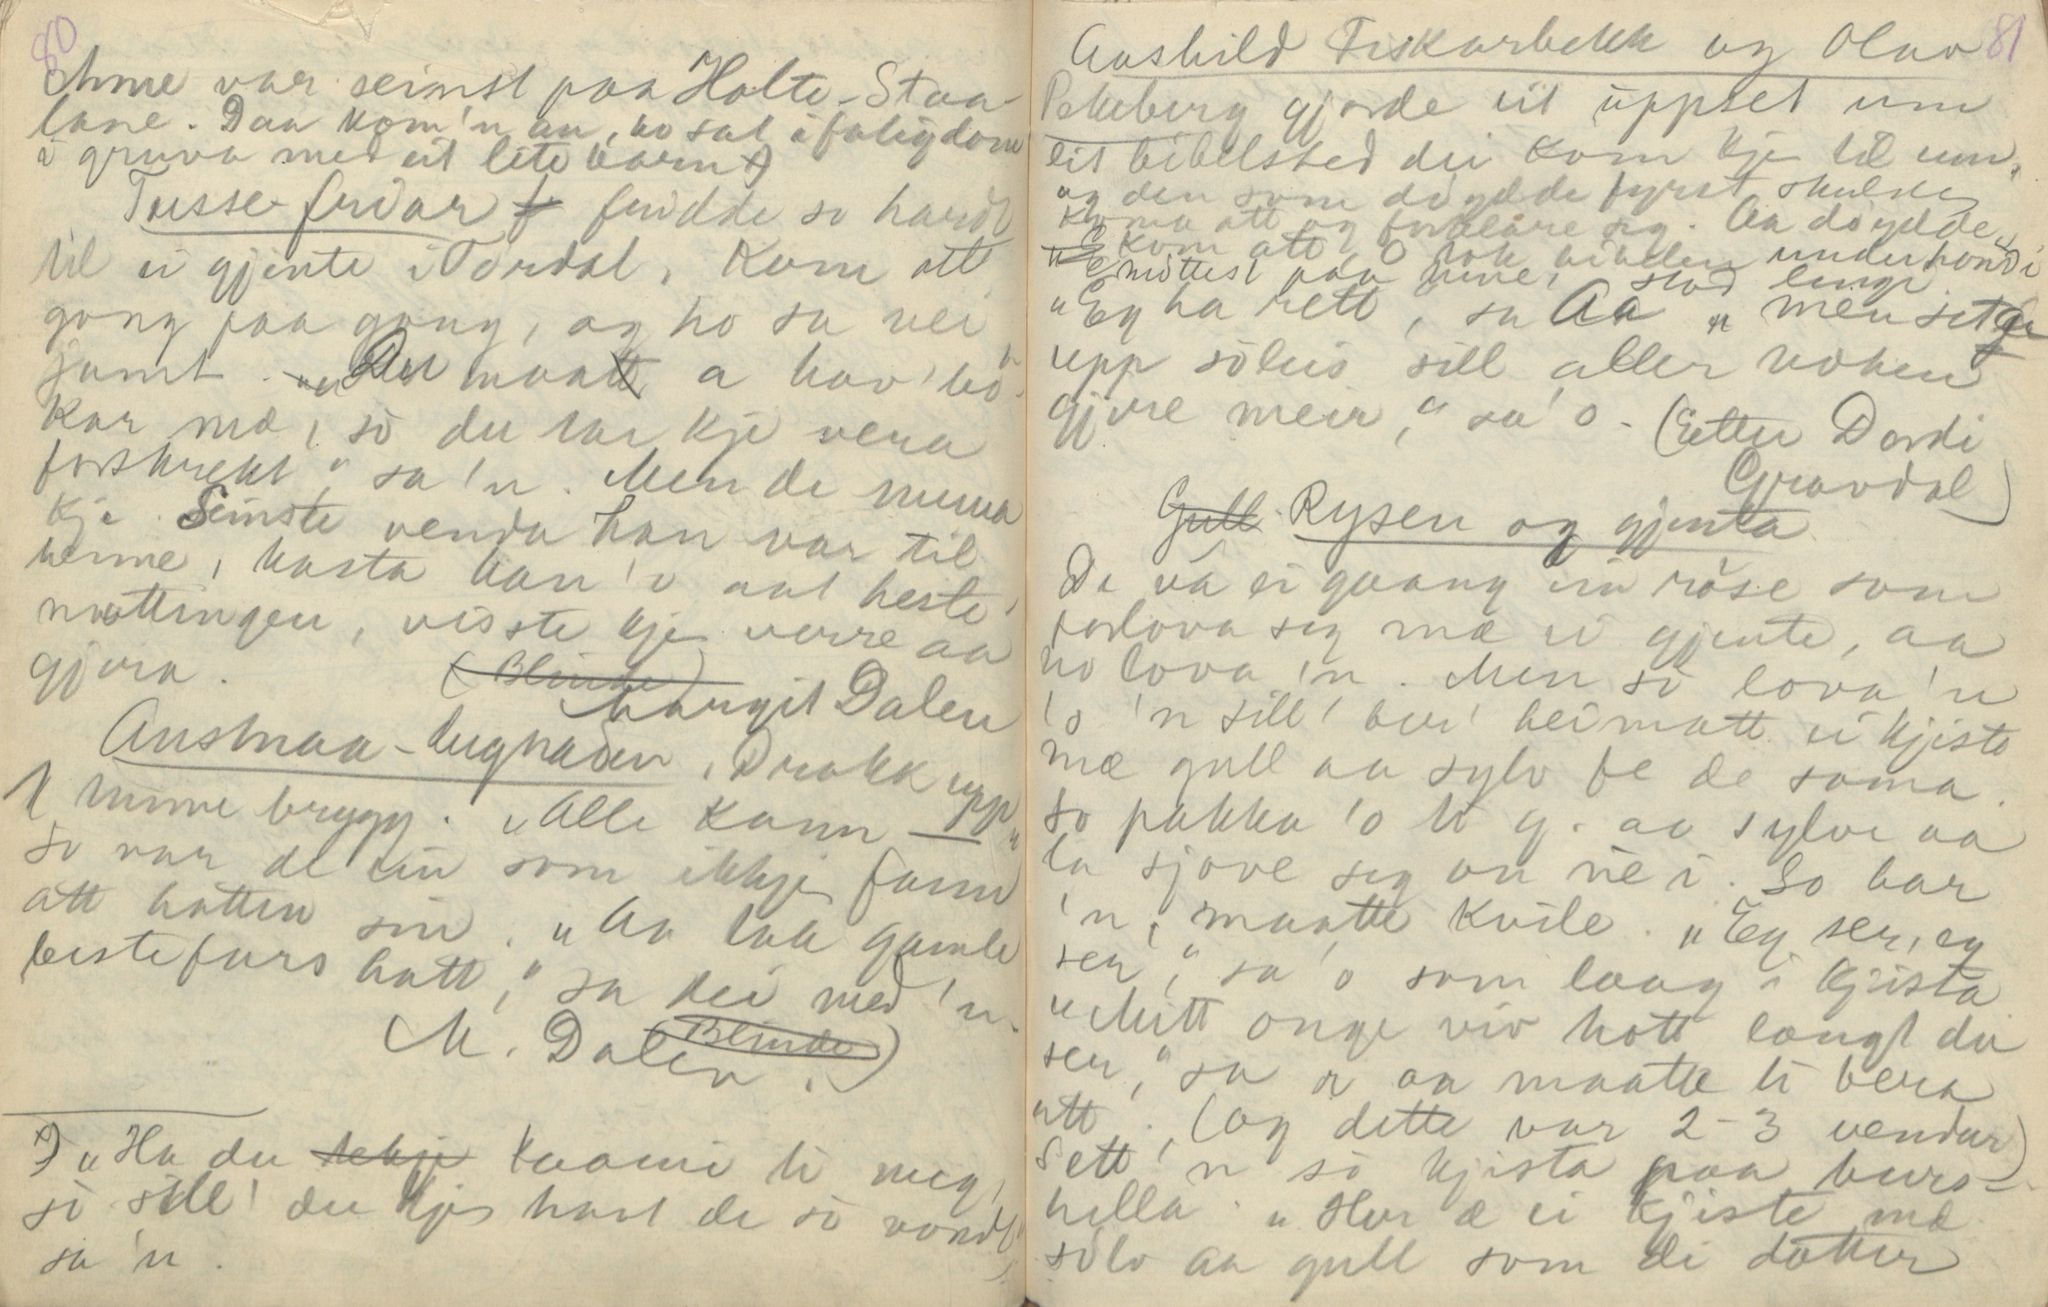 80
Ohme var seinst paa Holte-Staa-
lane. Daa kom'n an, ho sat i fatigdom
i gruva med eit lite barn x)
Tusse-fridar fridde so hardt
til ei gjente i Tørdal, kom att
gong paa gong, og ho sa nei
jamt. "Du maa a hav' bø-
kar mæ, so du tar kje vera
forskrekt," sa'n. Men de munna
kje. Seinste venda han var til
henne, kasta han'o aat heste-
møttingen, visste kje verre aa
gjera.
(Blinde) Margit Dalen
Austnaa-lugnaden. Drakk upp
1 tunne brygg. "Alle kann –"
So var de ein som ikkje fann
att hatten sin. "Aa tak gamle
bestefars hatt," sa dei med'n.
(M. Dalen. (Blinde))
x) "Ha du kaami ti meg,
so sill' du kje havt de so vondt"
sa'n.
81
Aashild Fiskarbekk og Olav
Pekeberg gjorde eit uppset um
eit bibelsted dei kom kje til um,
og den som døydde fyrst skulde
koma att og forklåre seg. Aa døydde,
kom att, O tok bibelen under hondi
møttest paa tune, stod lenge.
"Eg ha rett," sa Aa "men set
upp soleis sill aller voken
gjere meir," sa'o. (Etter Dordi
Gravdal)
Gull Rysen og gjenta
De va ei gaang ein rise som
forlova seg mæ ei gjente, aa
ho lova'n. Men so lova'n
'o 'n sill' ber' heimatt ei kjiste
mæ gull aa sylv fe de sama.
So pakka'o ti g. aa sylve aa
la sjøve seg en ne i. So bar
'n, maatte kvile. "Eg ser, eg
ser," sa'o som laag i kjista
"Mitt onge viv hott langt du
ser," sa n aa maatte ti bera
att. (og dette var 2-3 vendur)
Sett'n so kjista paa burs-
hella. "Her æ ei kjiste mæ
sølv aa gull som di dotter